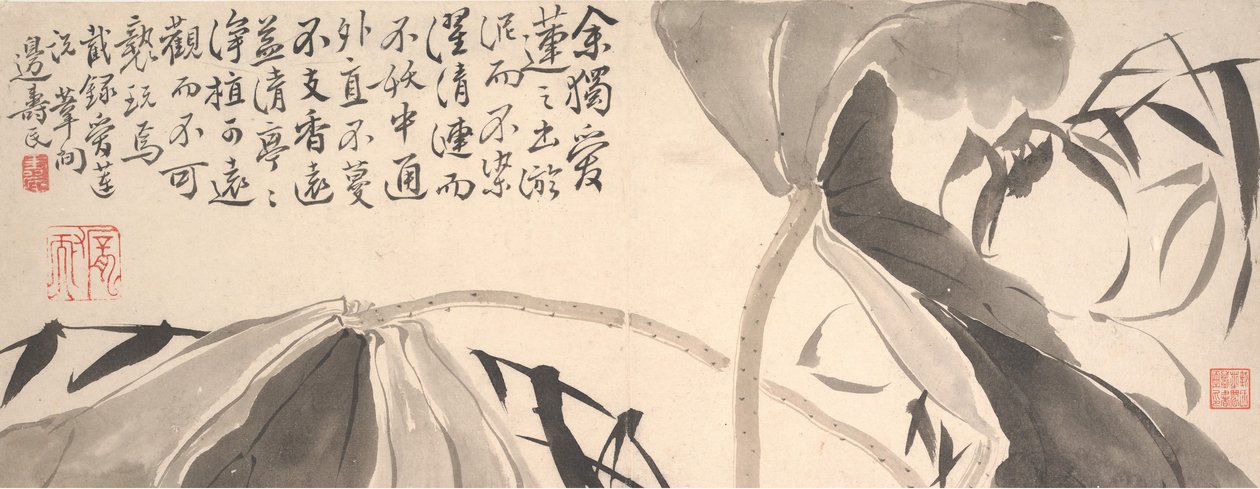 余獨愛
蓮之出淤
泥而不染
濯清漣而
不妖中通
外直不蔓
不支香遠
益清亭〻
淨植可遠
觀而不可
褻玩焉
截録愛蓮
説 葦间
邊壽民